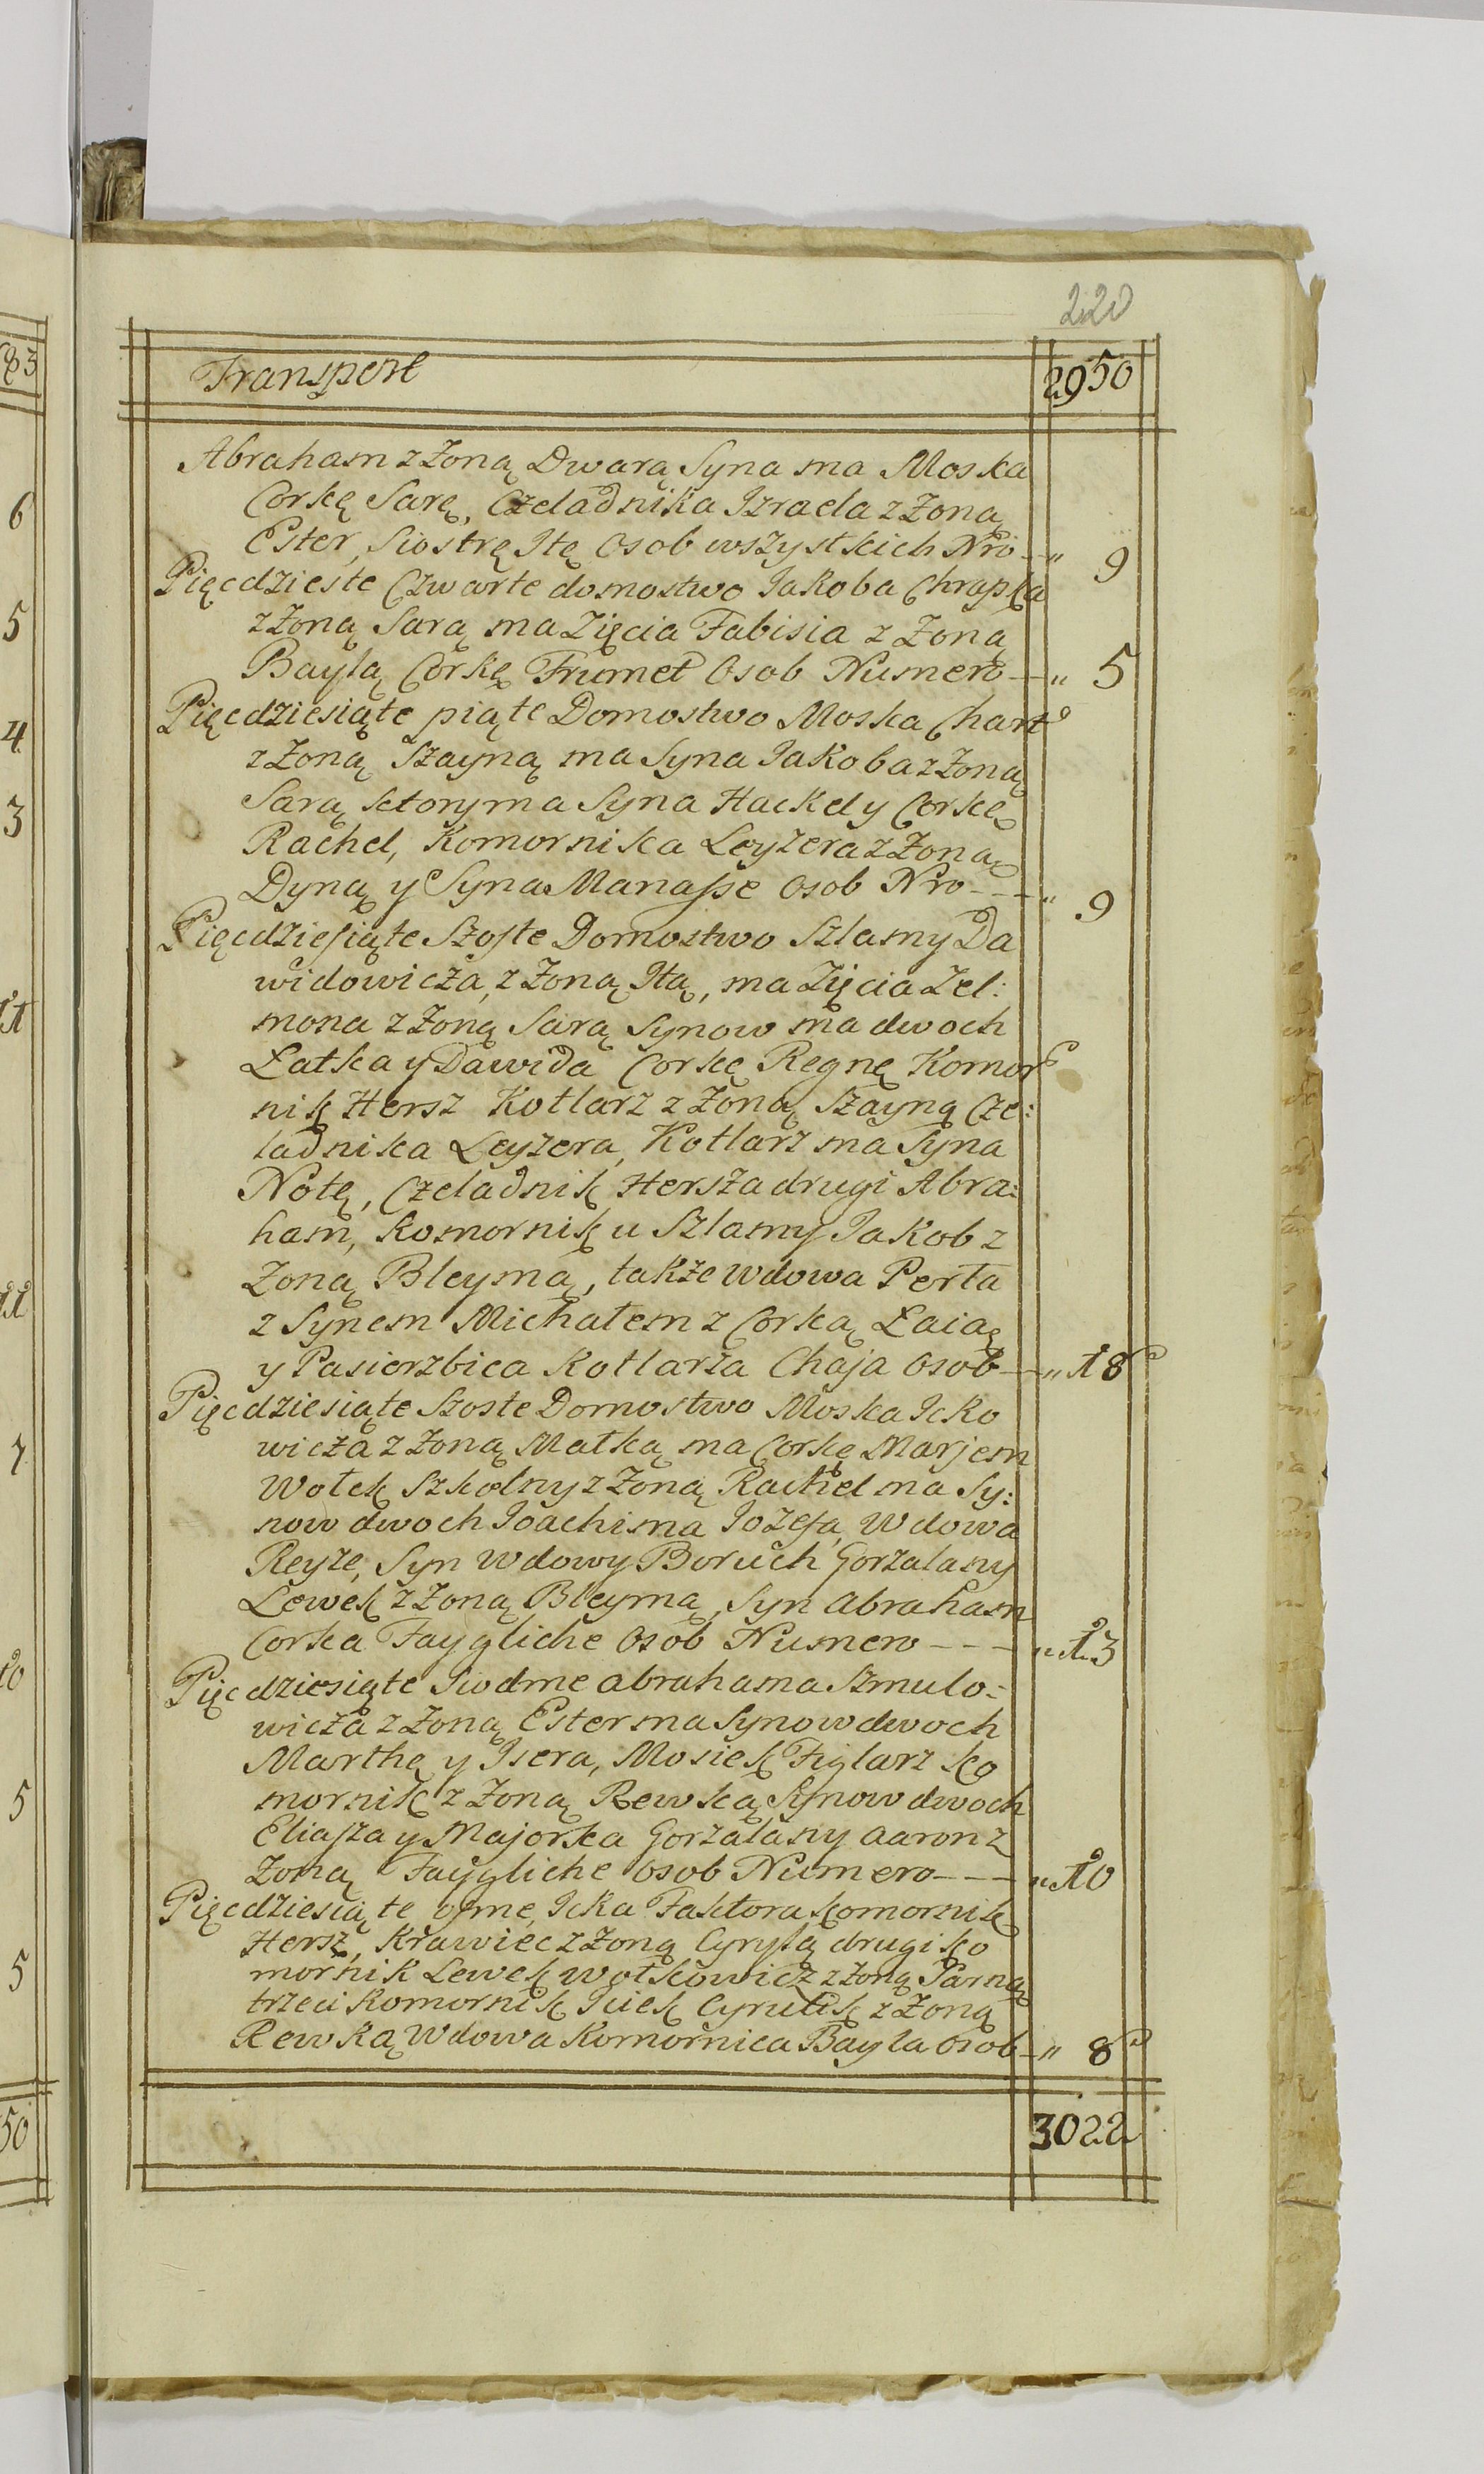 220
Transport 2950
Abraham z Żoną Dwarą Syna ma Moska
Corkę Sarę, Czeladnika Izraela z Żoną
Ester, Siostrę Itę Osob wszystkich Nro --„ 9
Pięcdzieste Czwarte domostwo Jakoba Chrapka
z Żoną Sarą ma Zięcia Fabisia z Żoną
Baylą Corkę Frumet Osob Numero --„ 5
Pięcdziesiąte piąte Domostwo Moska Chart
z Żoną Szayną ma Syna Jakoba z Żoną
Sarą ktory ma Syna Hackel y Corkę
Rachel, Komornika Leyzera z Żoną
Dyną y Syna Manasse Osob Nro --„ 9
Pięcdziesiąte Szoste Domostwo Szlamy Da
widowicza, z Żoną Itą, ma Zięcia Zel:
mona z Żoną Sarą Synow ma dwoch
Łatka y Dawida Corkę Regnę Komor
nik Hersz Kotlarz z Żoną Szayną Cze:
ladnika Leyzera, Kotlarz ma Syna
Notę, Czeladnik Hersza drugi Abra:
ham, Komornik u Szlamy Jakob z
Żoną Bleymą, także Wdowa Perla
z Synem Michałem z Corką Łaią
y Pasierzbica Kotlarza Chaja Osob --„ 18
Pięcdziesiąte Szoste Domostwo Moska Icko
wicza z Żoną Małką ma Corkę Marjem
Wolek Szkolny z Żoną Rachel ma Sy:
now dwoch Joachima Jozefa, Wdowa
Reyze, Syn Wdowy Boruch Gorzalany
Lewek z Żoną Bleymą, Syn Abraham
Corka Faygliche Osob Numero --- „ 13
Pięcdziesiąte Siodme Abrahama Szmulo:
wicza z Żoną Ester ma Synow dwoch
Marthę y Isera, Mosiek Figlarz ko
mornik z Żoną Rewką Synow dwoch
Eliasza y Majorka Gorzalany Aaron z
Żoną Faygliche Osob Numero --- „ 10
Pięcdziesiąte osme, Icka Faktora komornik
Hersz, Krawiec z Żoną Cyrylą drugi ko
mornik Lewek Wolkowicz z Żoną Parną
trzeci Komornik Iciek Cyrulik z Żoną
Rewką Wdowa Komornica Bayla Osob --„ 8
3022
83
6
5
4
3
11
11
7
10
5
5
50